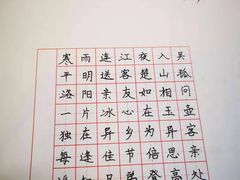 寒雨连江夜入吴
平明送客楚山孤
洛阳亲友如相问
一片冰心在玉壶
独在异乡为异客
每逢佳节倍思亲
遥知兄弟登高处